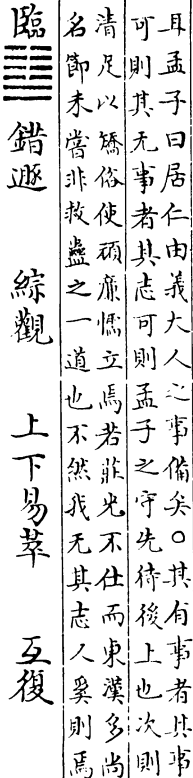 耳孟子曰居仁由義大人之事備矣○其有事者其事
可則其无事者其志可則孟子之守先待後上也次則
清足以矯俗使頑廉懦立焉若莊光不仕而東漢多尚
名節未嘗非救蠱之一道也不然我无其志人奚則焉
臨䷒ 錯遯 綜觀 上下易萃 互復